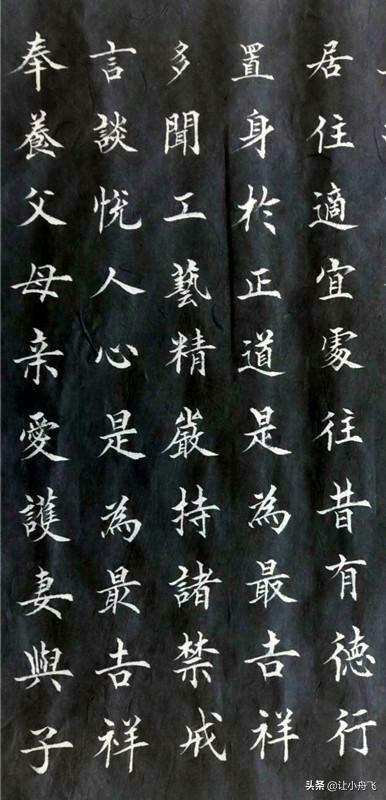 居住適宜處往昔有德行
置身於正道是為最吉祥
多聞工藝精嚴持諸禁戒
言談悅人心是為最吉祥
奉養父母亲愛護妻與子
头条 @让小舟飞